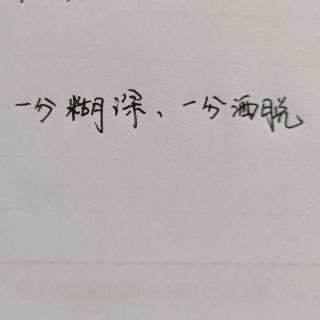 一分糊涂、一分洒脱